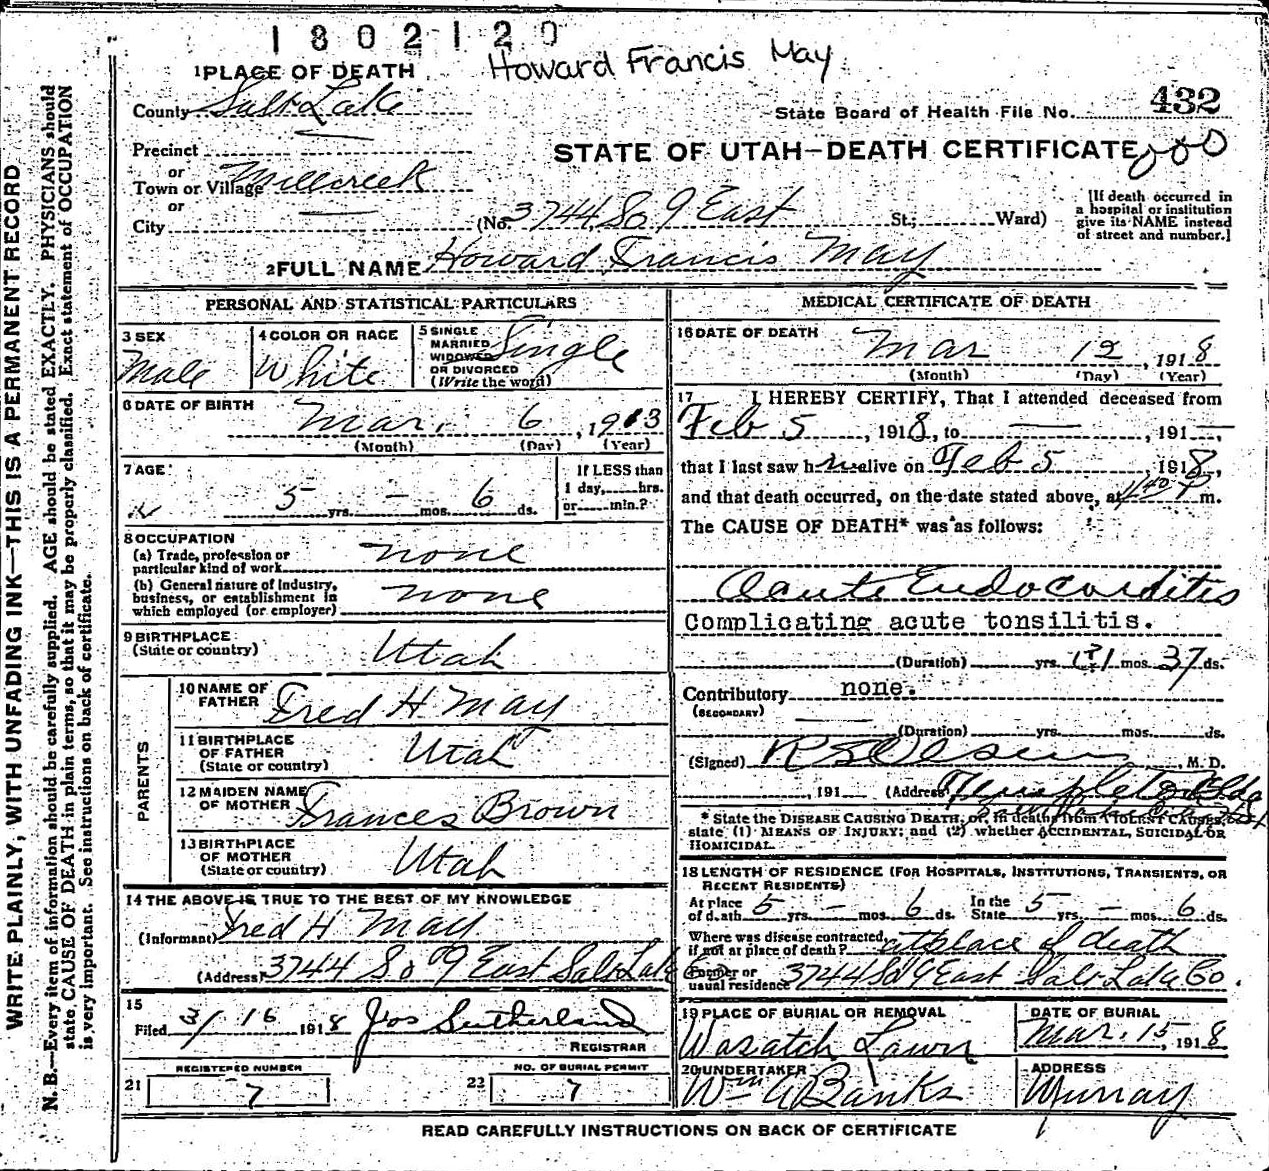 1802120
Howard Francis May
1 PLACE OF DEATH
County Salt Lake
State Board of Health File No. 432
Precinct
STATE OF UTAH—DEATH CERTIFICATE
or
Town or Village Millcreek
or
City (No. 3744 So 9 East St; Ward)
[If death occurred in a hospital or institution give its NAME instead of street and number.]
2 FULL NAME Howard Francis May
PERSONAL AND STATISTICAL PARTICULARS
3 SEX Male
4 COLOR OR RACE White
5 SINGLE MARRIED WIDOWED OR DIVORCED (Write the word) Single
6 DATE OF BIRTH Mar. 6, 1913
(Month) (Day) (Year)
7 AGE 5 yrs. — mos. 6 ds.
If LESS than 1 day, hrs. or min.?
8 OCCUPATION
(a) Trade, profession or particular kind of work none
(b) General nature of industry, business, or establishment in which employed (or employer) none
9 BIRTHPLACE (State or country) Utah
PARENTS
10 NAME OF FATHER Fred H May
11 BIRTHPLACE OF FATHER (State or country) Utah
12 MAIDEN NAME OF MOTHER Frances Brown
13 BIRTHPLACE OF MOTHER (State or country) Utah
14 THE ABOVE IS TRUE TO THE BEST OF MY KNOWLEDGE
(Informant) Fred H May
(Address) 3744 So 9 East Salt Lake
15
Filed 3/16 1918 Jos Sutherland
REGISTRAR
REGISTERED NUMBER
21 7
NO. OF BURIAL PERMIT
22 7
MEDICAL CERTIFICATE OF DEATH
16 DATE OF DEATH Mar 12, 1918
(Month) (Day) (Year)
17 I HEREBY CERTIFY, That I attended deceased from
Feb 5, 1918, to —, 191—,
that I last saw him alive on Feb 5, 1918,
and that death occurred, on the date stated above, at 1140 P m.
The CAUSE OF DEATH* was as follows:
Acute Endocarditis
Complicating acute tonsilitis.
(Duration) yrs. mos. 37 ds.
Contributory none.
(SECONDARY)
(Duration) yrs. mos. ds.
(Signed) M. D.
, 191 (Address) Templeton Bldg
* State the DISEASE CAUSING DEATH, or, in deaths from VIOLENT CAUSES,
state (1) MEANS OF INJURY; and (2) whether ACCIDENTAL, SUICIDAL OR
HOMICIDAL.
18 LENGTH OF RESIDENCE (FOR HOSPITALS, INSTITUTIONS, TRANSIENTS, OR
RECENT RESIDENTS)
At place of death 5 yrs. — mos. 6 ds. In the State 5 yrs. — mos. 6 ds.
Where was disease contracted, if not at place of death? at place of death
Former or usual residence 3744 So 9 East Salt Lake Co.
19 PLACE OF BURIAL OR REMOVAL Wasatch Lawn
DATE OF BURIAL Mar. 15, 1918
20 UNDERTAKER Wm A Banks
ADDRESS Murray
READ CAREFULLY INSTRUCTIONS ON BACK OF CERTIFICATE
WRITE PLAINLY, WITH UNFADING INK—THIS IS A PERMANENT RECORD
N. B.—Every item of information should be carefully supplied. AGE should be stated EXACTLY. PHYSICIANS should
state CAUSE OF DEATH in plain terms, so that it may be properly classified. Exact statement of OCCUPATION
is very important. See instructions on back of certificate.